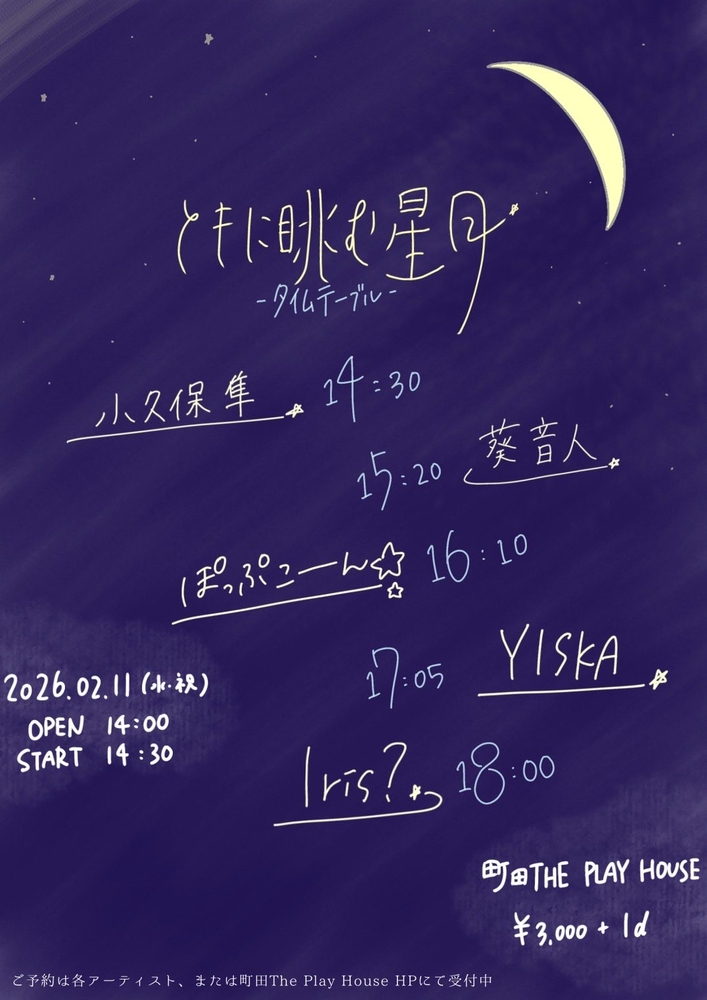 ともに眺む星月
-タイムテーブル-
小久保 隼 14:30
15:20 葵音人
ぽっぷこーん☆ 16:10
17:05 YISKA
2026.02.11(水・祝)
OPEN 14:00
START 14:30
Iris? 18:00
町田THE PLAY HOUSE
¥3,000 + 1d
ご予約は各アーティスト、または町田The Play House HPにて受付中